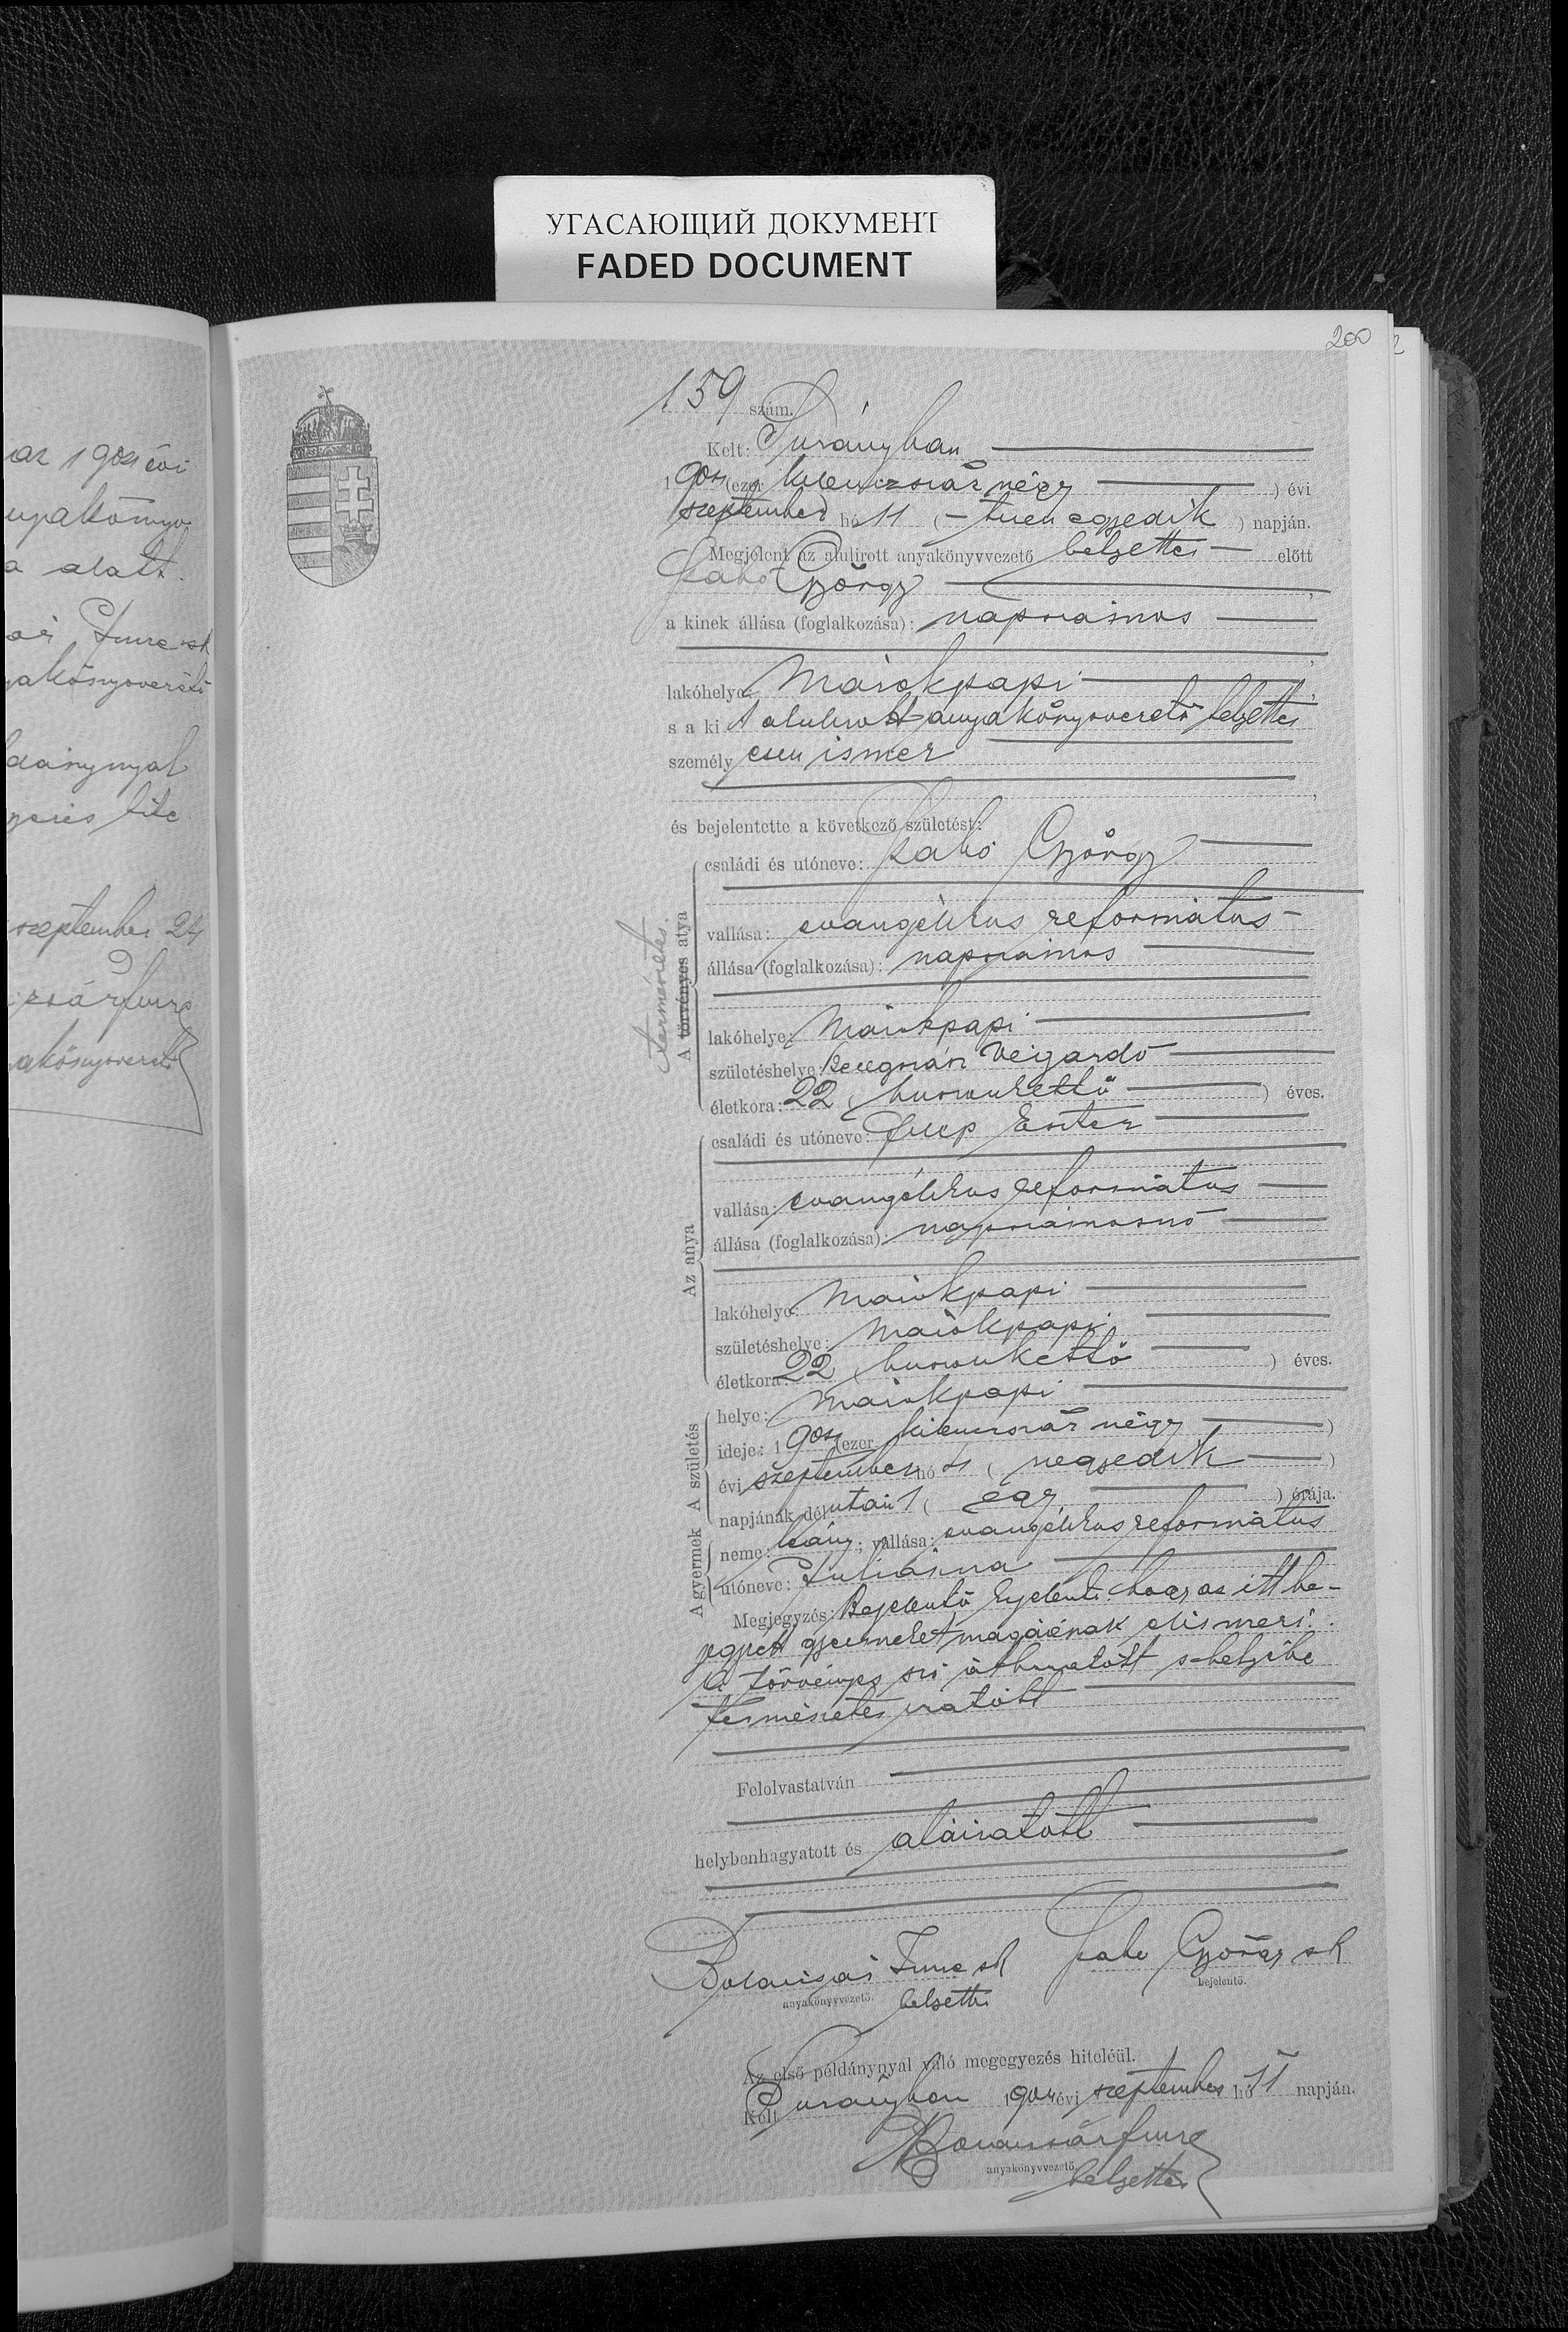 УГАСАЮЩИЙ ДОКУМЕНТ
FADED DOCUMENT
200
az 1904 évi
a alatt.
Imre sk
september 24
159 szám.
Kelt: Surányban
1904 (ezer kilenczszáz négy ) évi
szeptember hó 11 ( – tizen egyedik ) napján.
Megjelent az alulirott anyakönyvvezető helyettes előtt
Szabó György
a kinek állása (foglalkozása): napszámos
lakóhelye: Márokpapi
s a ki t alulirott anyakönyvvezető helyettes
személy esen ismer
és bejelentette a következő születést:
A törvényes atya
természetes
családi és utóneve: Szabó György
vallása: evangélikus református –
állása (foglalkozása): napszámos
lakóhelye: Márokpapi
születéshelye: Beregmegye Végardó
életkora: 22 ( huszonkettő ) éves.
Az anya
családi és utóneve: Eszter
vallása: evangélikus református
állása (foglalkozása): napszámosnő
lakóhelye: Márokpapi
születéshelye: Márokpapi
életkora: 22 ( huszonkettő ) éves.
A születés
helye: Márokpapi
ideje: 1904 (ezer kilenczszáz négy )
évi szeptember hó 4 ( negyedik )
napjának délután 1 ( egy ) órája.
A gyermek
neme: leány; vallása: evangélikus református
utóneve: Juliánna
Megjegyzés: Bejelentő kijelenti hogy az itt be-
jegyzett gyermeket magáénak elismeri.
A törvényes szó áthuzatott s helyébe
természetes iratott
Felolvastatván
helybenhagyatott és aláiratott
Imre sk Szabó György sk
anyakönyvvezető. helyettes bejelentő.
Az első példánynyal való megegyezés hiteléül.
Kelt Surányban 1904 évi szeptember hó 11 napján.
Imre
anyakönyvvezető. helyettes